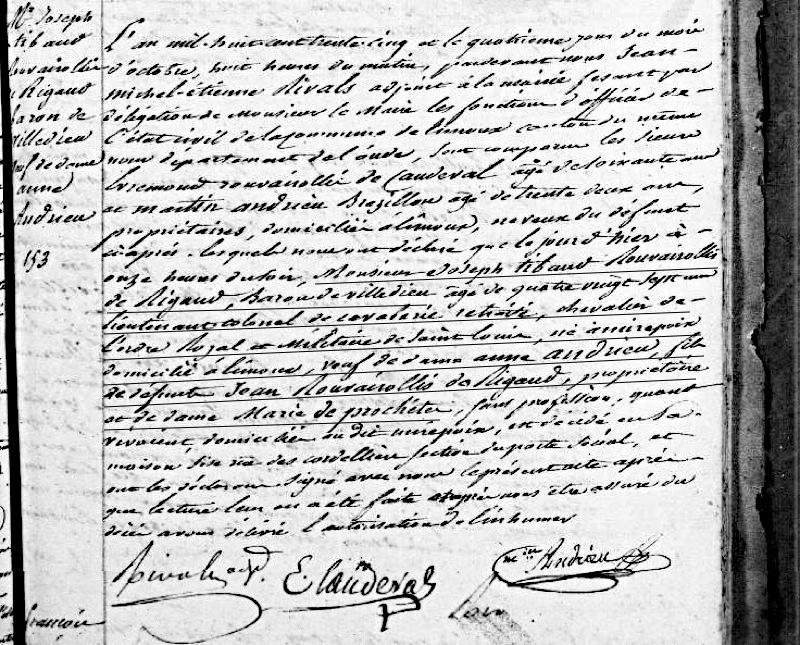 Mr Joseph
tibaud
Rouvairollis
de Rigaud
baron de
villedieu
veuf de dame
anne
Andrieu
153
L'an mil-huit cent trente cinq et le quatrieme jour du mois
d'octobre, huit heures du matin, pardevant nous Jean-
michel-étienne Rivals adjoint à la mairie fesant par
délégation de Monsieur le Maire les fonctions d'officier de-
l'état civil de la commune de limoux canton du même
nom departement de l'aude, sont comparus les sieurs
rouvairollis de Cauderal agé de soixante ans
et martin andrieu Brezillou agé de trente deux ans,
propriétaires, domiciliés à limoux, neveux du défunt
ci-après. lesquels nous ont déclaré que le jour d'hier à-
onze heures du soir, Monsieur Joseph tibaud Rouvairollis
de Rigaud, Baron de villedieu agé de quatre vingt sept ans
lieutenant colonel de cavalerie retraité, chevalier de-
l'ordre Royal et Militaire de Saint louis, né à mirepoix
domicilié à limoux, veuf de dame anne andrieu, fils
de défunts Jean Rouvairollis de Rigaud, propriétaire
et de dame Marie de prochéte, sans profession, quand
vivaient, domiciliés au dit mirepoix, est décédé en sa-
maison sise rue des cordelliers section du poste social, et
ont les déclarans signé avec nous le présent acte après-
que lecture leur en a été faite et après nous être assuré du
décès avons délivré l'autorisation de l'inhumer
Rivals adj.
E Cauderal
Min Andrieu
francois